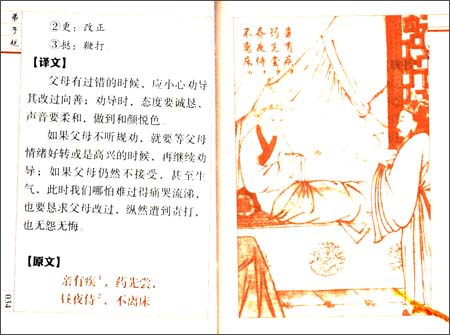 弟子规
②更：改正
③挞：鞭打
【译文】
父母有过错的时候，应小心劝导
其改过向善；劝导时，态度要诚恳，
声音要柔和，做到和颜悦色。
如果父母不听规劝，就要等父母
情绪好转或是高兴的时候，再继续劝
导；如果父母仍然不接受，甚至生
气，此时我们哪怕难过得痛哭流涕，
也要恳求父母改过，纵然遭到责打，
也无怨无悔。
【原文】
亲有疾¹，药先尝，
昼夜侍²，不离床
034
亲有疾
药先尝
昼夜侍
不离床